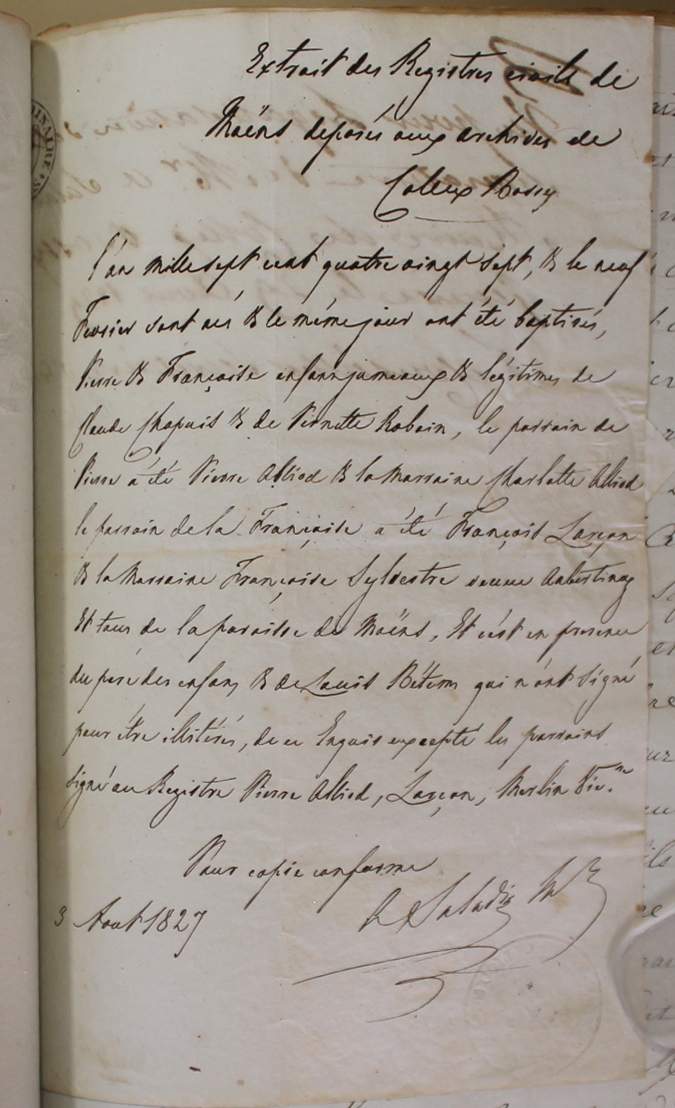 Extrait des Registres civils de
Moëns deposés aux archives de
Collex Bossy
L'an mille sept cent quatre vingt sept, & le neuf
Fevrier sont nés & le même jour ont été baptisés,
Pierre & Françoise enfans jumeaux & légitimes de
Claude Chapuis & de Pernette Robain, le parrain de
Pierre a été Pierre Alliod & la Marraine Charlotte Alliod
le parrain de la Françoise a été François Larçon
& la Marraine Françoise Sylvestre
Et tous de la paroisse de Moëns, Et c'est en presence
du pere des enfans & de Louis qui n'ont signé
pour être illitérés, de ce Enquis excepté les parrains
Signé au Registre Pierre Alliod, Larçon, Merlin Vic.re
Pour copie conforme
3 Aout 1827
Saladin